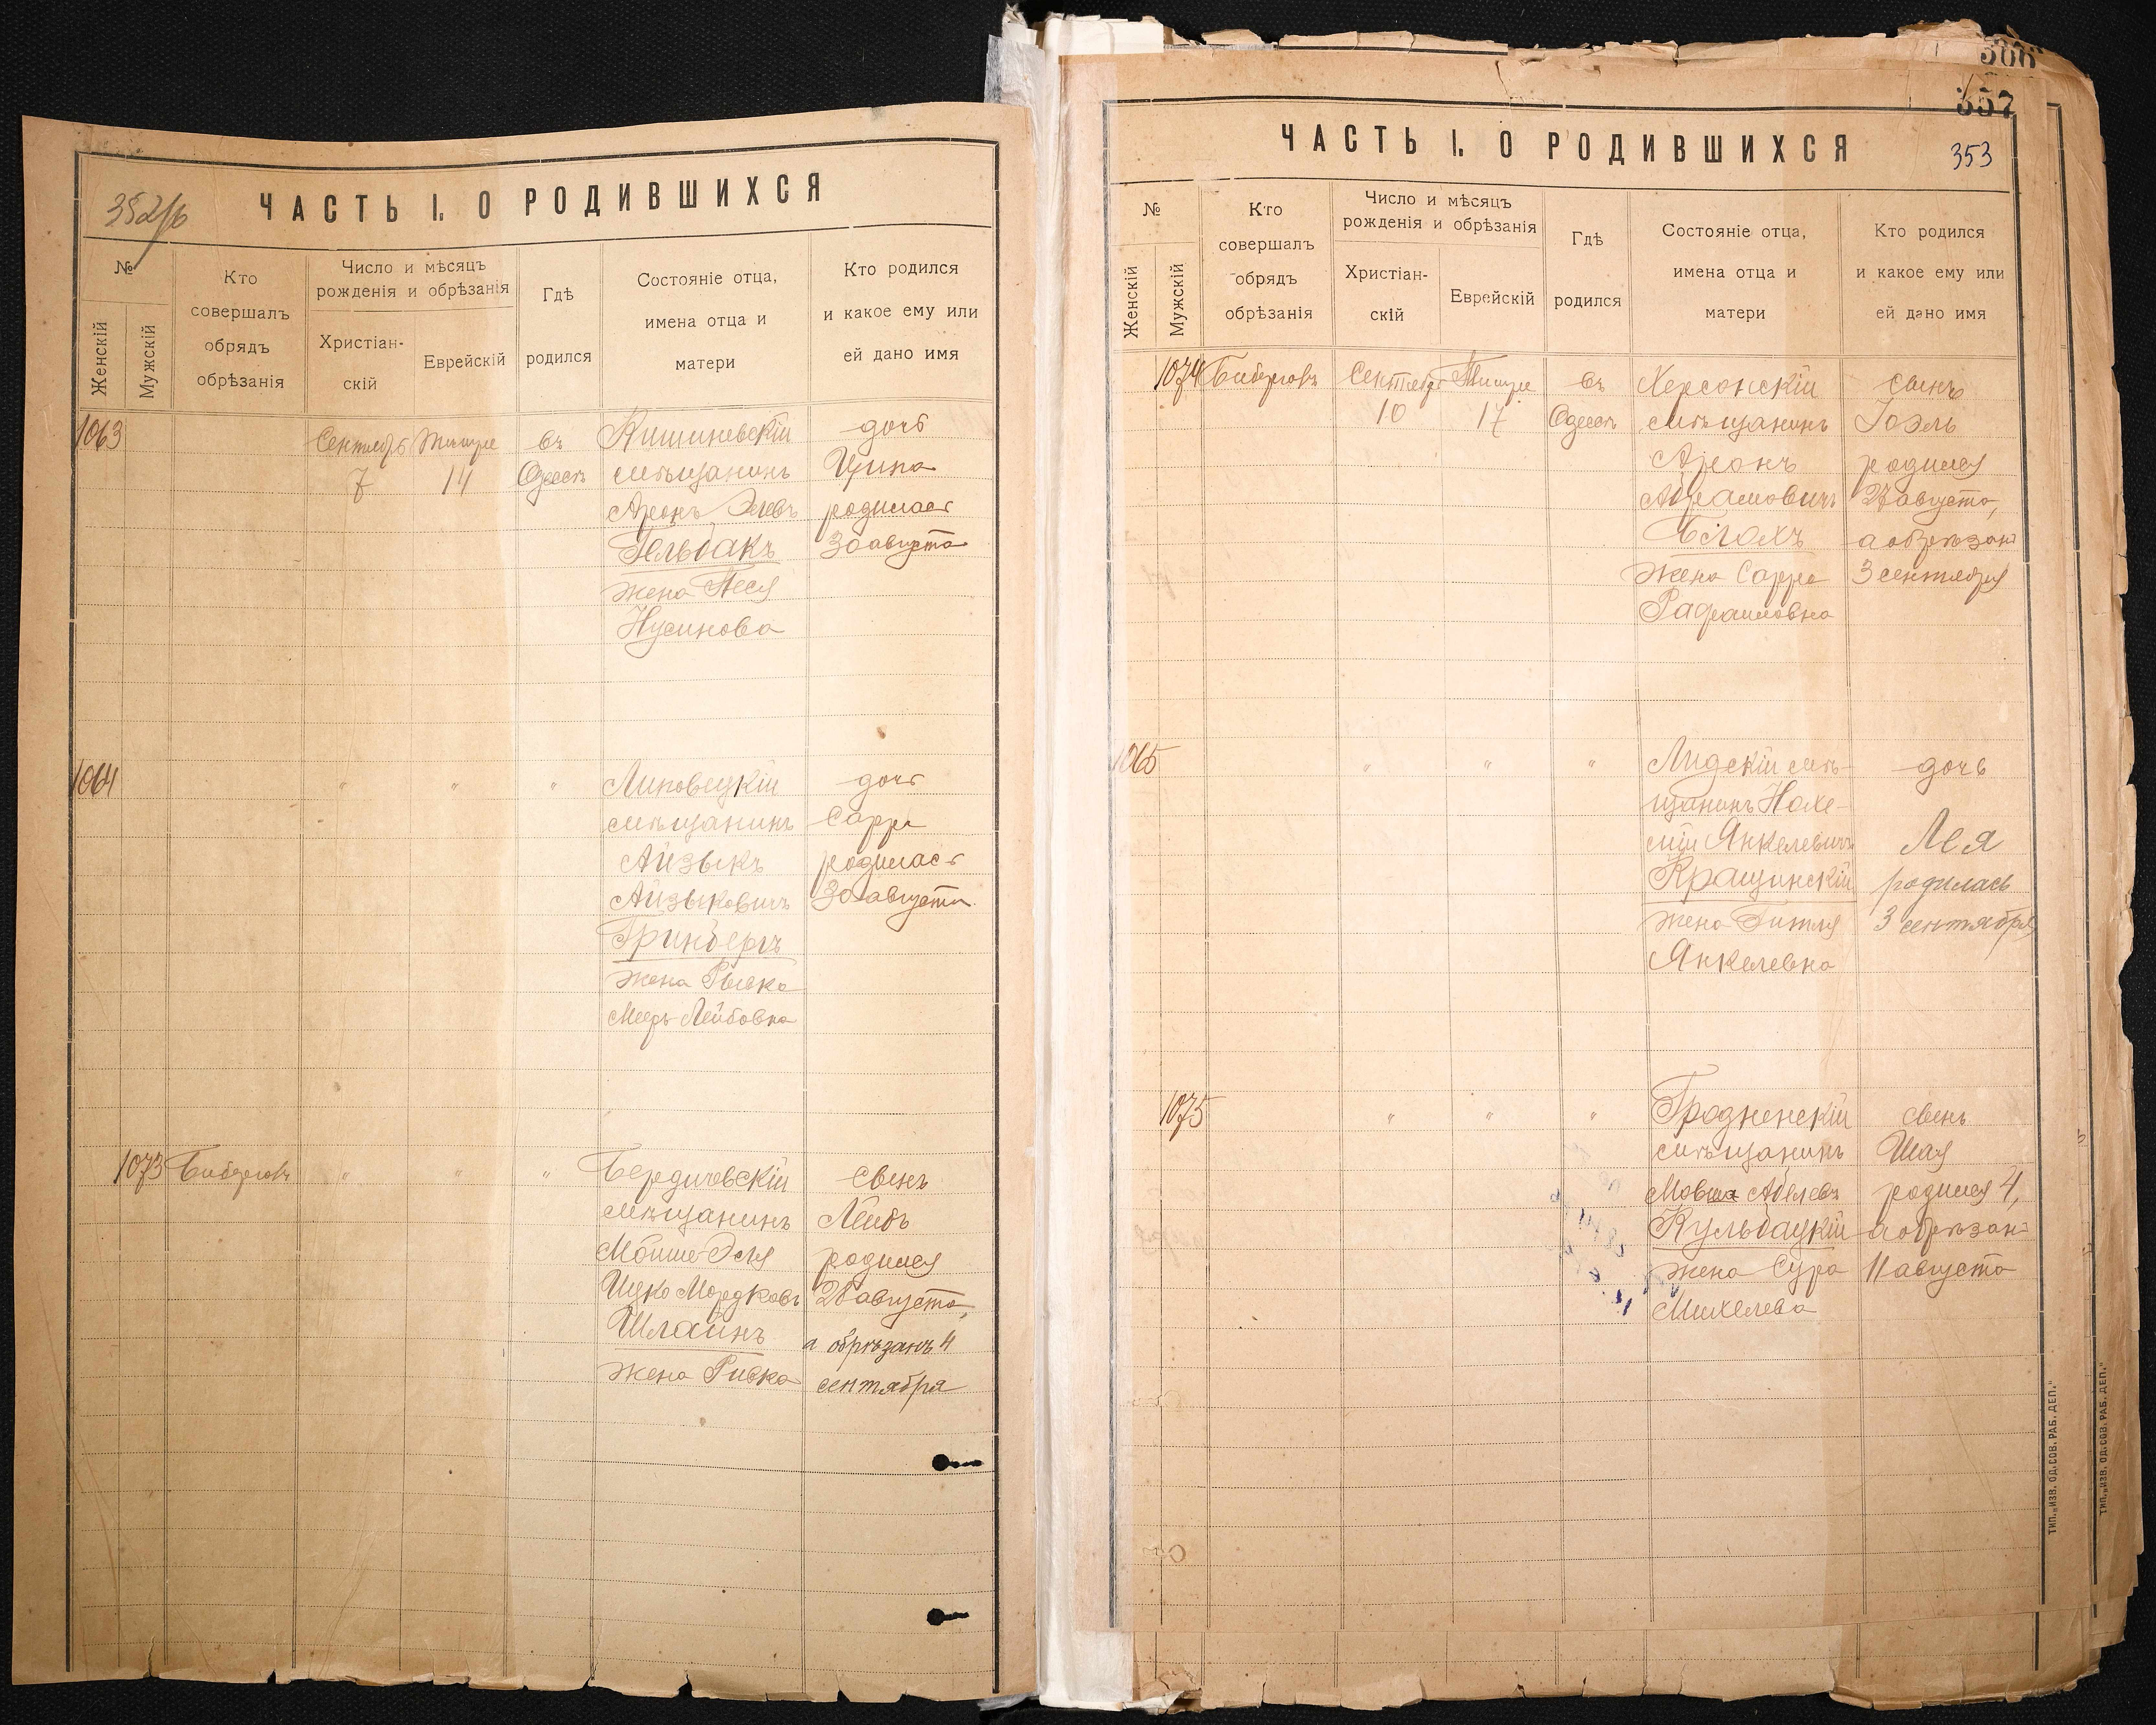 352/б
ЧАСТЬ I. О РОДИВШИХСЯ
№
Женскій
Мужскій
Кто
совершалъ
обрядъ
обрѣзанія
Число и мѣсяцъ
рожденія и обрѣзанія
Христіан-
скій
Еврейскій
Гдѣ
родился
Состояніе отца,
имена отца и
матери
Кто родился
и какое ему или
ей дано имя
1063
Сентябрь
7
Тишре
14
въ
Одессѣ
Кишиневскій
мѣщанинъ
Аронъ Элевъ
Гельбакъ
жена Песя
Нусинова
дочь
Ципа
родилась
30 августа
1064
"
"
"
Липовецкій
мѣщанинъ
Айзыкъ
Айзыковичъ
Гринбергъ
жена Рывка
Меер-Лейбовна
дочь
Сарра
родилась
30 августа
1073
Бибергов
"
"
"
Бердичевскій
мѣщанинъ
Мойше-Эля
Ицко Мордковъ
Шлаинъ
жена Ривка
сынъ
Лейбъ
родился
28 августа,
а обрѣзанъ 4
сентября
300
357
353
ЧАСТЬ I. О РОДИВШИХСЯ
№
Женскій
Мужскій
Кто
совершалъ
обрядъ
обрѣзанія
Число и мѣсяцъ
рожденія и обрѣзанія
Христіан-
скій
Еврейскій
Гдѣ
родился
Состояніе отца,
имена отца и
матери
Кто родился
и какое ему или
ей дано имя
1074
Бибергов
Сентября
10
Тишре
17
въ
Одессѣ
Херсонскій
мѣщанинъ
Аронъ
Абрамовичъ
Блохъ
жена Сарра
Рафаиловна
сынъ
Іоэль
родился
27 августа,
а обрѣзанъ
3 сентября
1065
"
"
"
Лидскій мѣ-
щанинъ Нохе-
мій Янкелевичъ
Кращинскій
жена Гитля
Янкелевна
дочь
Лея
родилась
3 сентября
1075
"
"
"
Гродненскій
мѣщанинъ
Мовша Абелевъ
Кульбацкій
жена Сура
Михелева
сынъ
Шая
родился 4,
а обрѣзанъ
11 августа
ТИП. „ИЗВ. ОД. СОВ. РАБ. ДЕП."
ТИП. „ИЗВ. ОД. СОВ. РАБ. ДЕП."